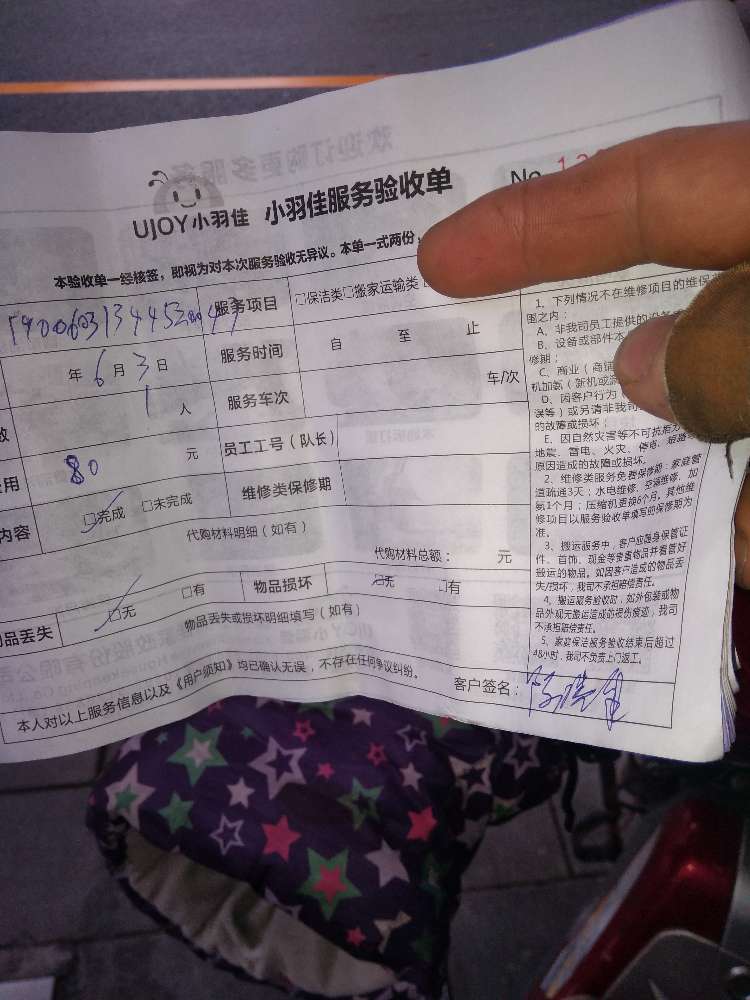 欢迎订购更多服务
UJOY小羽佳 小羽佳服务验收单
No
本验收单一经核签，即视为对本次服务验收无异议。本单一式两份，
服务项目 □保洁类 □搬家运输类
年6月3日 服务时间 自 至 止
1人 服务车次 车/次
用 80 元 员工工号（队长）
内容 □完成 □未完成 维修类保修期
代购材料明细（如有）
代购材料总额： 元
物品丢失 □无 □有 物品损坏 □无 □有
物品丢失或损坏明细填写（如有）
本人对以上服务信息以及《用户须知》均已确认无误，不存在任何争议纠纷。
客户签名：
1、下列情况不在维修项目的维保
围之内：
A、非我司员工提供的设
B、设备或部件本
修期；
C、商业（商
机加氨（新机或
D、因客户行为
误等）或另请非我司
的故障或损坏；
E、因自然灾害等不可抗
地震、雷电、火灾、停电、短路
原因造成的故障或损坏。
2、维修类服务免费保修期：家庭管
道疏通3天；水电维修、空调维修、加
氨1个月；压缩机更换6个月，其他维
修项目以服务验收单填写的保修期为
准。
3、搬运服务中，客户应随身保管证
件、首饰、现金等贵重物品并看管好
搬运的物品。如因客户造成的物品丢
失/损坏，我司不承担赔偿责任。
4、搬运服务验收时，如外包装或物
品外观无搬运造成的损伤痕迹，我司
不承担赔偿责任。
5、家庭保洁服务验收结束后超过
48小时，我司不负责上门返工。